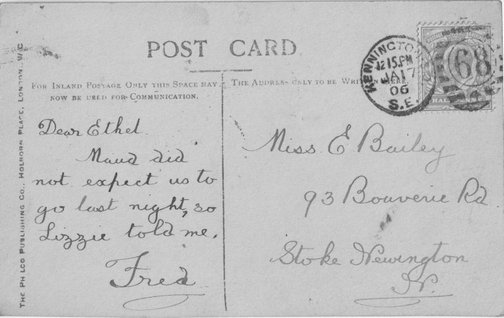 POST CARD
FOR INLAND POSTAGE ONLY THIS SPACE MAY
NOW BE USED FOR COMMUNICATION.
THE ADDRESS ONLY TO BE
THE PHILCO PUBLISHING CO., HOLBORN PLACE, LONDON, W.C.
KENNINGTON
12 15 PM
JA 17
06
S.E.
68
HALF
Dear Ethel.
Maud did
not expect us to
go last night, so
Lizzie told me.
Fred
Miss E Bailey
93 Bouverie Rd
Stoke Newington
N.